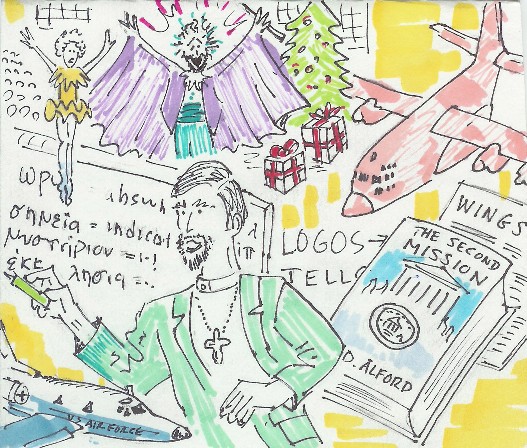 ωρι
σημεία = indicat
Μυστήριον = -!
εκκ λησια =..
LOGOS→
TELLO
WINGS
THE SECOND
MISSION
D. ALFORD
U.S AIR FORCE